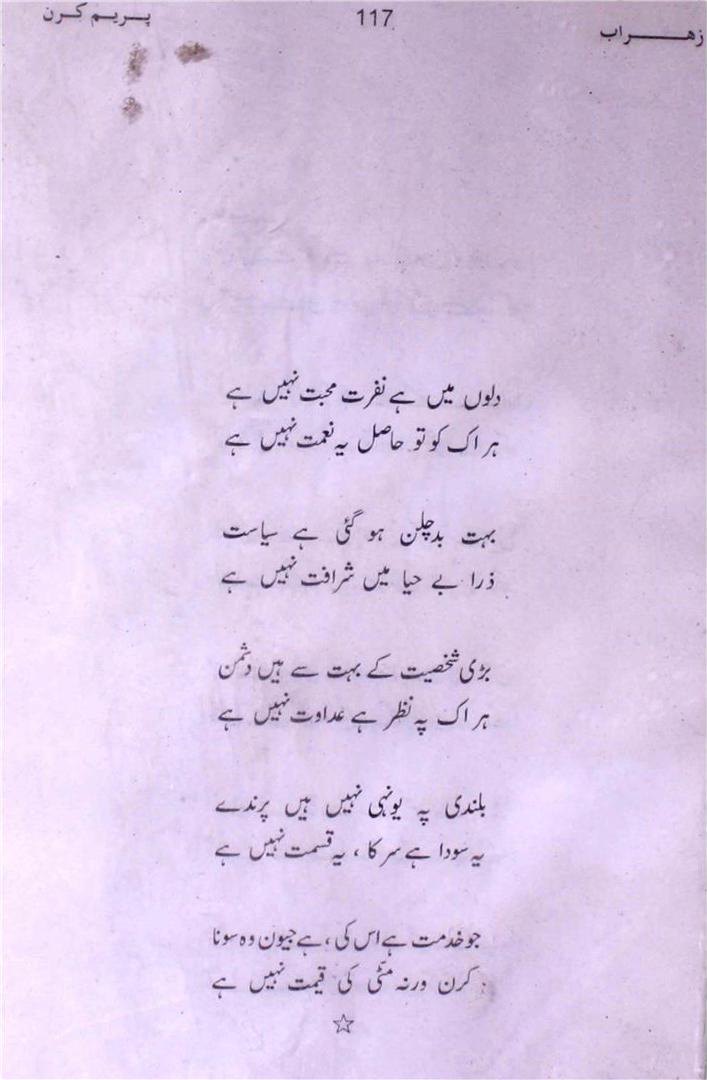 زهراب 117 پریم کرن
دلوں میں ہے نفرت محبت نہیں ہے
ہر اک کو تو حاصل یہ نعمت نہیں ہے
بہت بدچلن ہو گئی ہے سیاست
ذرا بے حیا میں شرافت نہیں ہے
بڑی شخصیت کے بہت سے ہیں دشمن
ہر اک پہ نظر ہے عداوت نہیں ہے
بلندی پہ یونہی نہیں ہیں پرندے
یہ سودا ہے سر کا ، یہ قسمت نہیں ہے
جو خدمت ہے اس کی ، ہے جیون وہ سونا
کرن ورنہ مٹّی کی قیمت نہیں ہے
☆